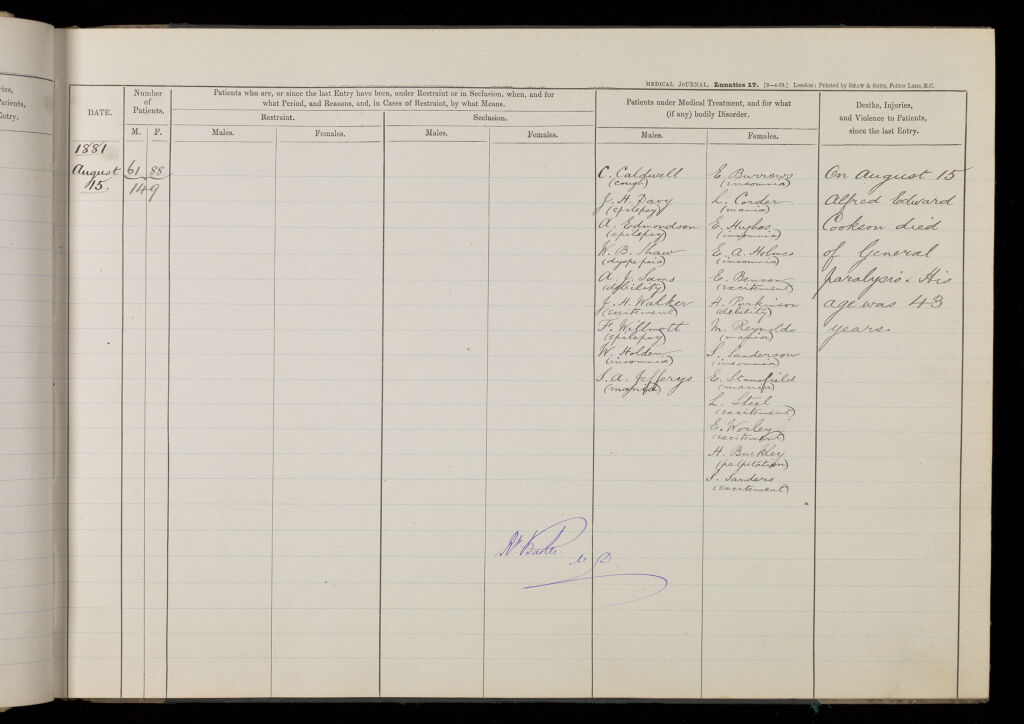 ries,
Patients,
Entry.
MEDICAL JOURNAL. Lunatics 17. [2—4-78.] London: Printed by SHAW & SONS, Fetter Lane, E.C.
DATE.
Number of Patients.
M. F.
Patients who are, or since the last Entry have been, under Restraint or in Seclusion, when, and for
what Period, and Reasons, and, in Cases of Restraint, by what Means.
Restraint.
Seclusion.
Males. Females. Males. Females.
Patients under Medical Treatment, and for what
(if any) bodily Disorder.
Males. Females.
Deaths, Injuries,
and Violence to Patients,
since the last Entry.
1881
August
15.
61 88
149
C. Caldwell
(cough)
J. H. Davy
(epilepsy)
A. Edmondson
(epilepsy)
W. B. Shaw
(dyspepsia)
A. J. Sams
(debility)
J. H. Walker
(excitement)
F. Willmott
(epilepsy)
W. Holden
(insomnia)
S. A. Jefferys
(mania)
E. Burrows
(insomnia)
L. Corder
(mania)
E. Hughes
(insomnia)
E. A. Holmes
(insomnia)
E. Benson
(excitement)
H. Parkinson
(debility)
M. Reynolds
(mania)
S. Sanderson
(insomnia)
E. Stansfield
(mania)
L. Steel
(excitement)
E. Worley
(excitement)
H. Buckley
(palpitation)
S. Sanders
(excitement)
On August 15
Alfred Edward
Cookson died
of General
paralysis. His
age was 43
years.
Rt. Baker
M.D.